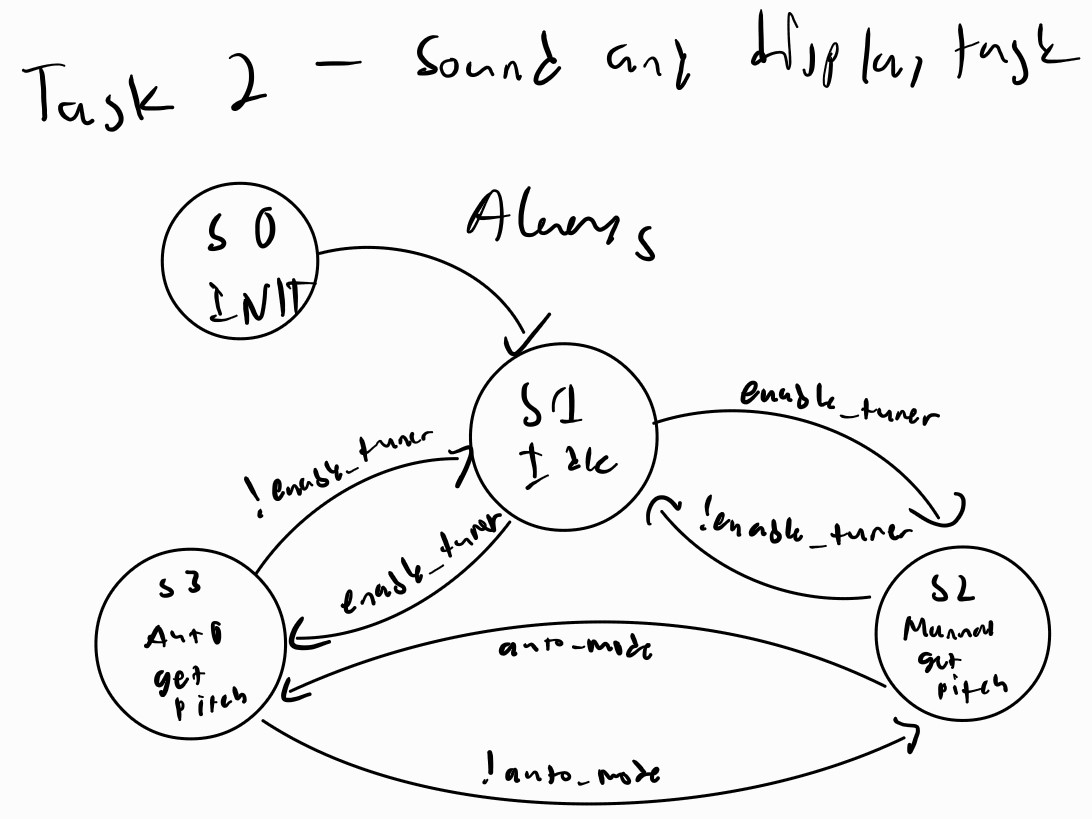 Task 2 - Sound and display task
S0
INIT
Always
S1
Idle
enable_tuner
!enable_tuner
!enable_tuner
enable_tuner
S3
Auto
get
pitch
S2
Manual
get
pitch
auto_mode
!auto_mode